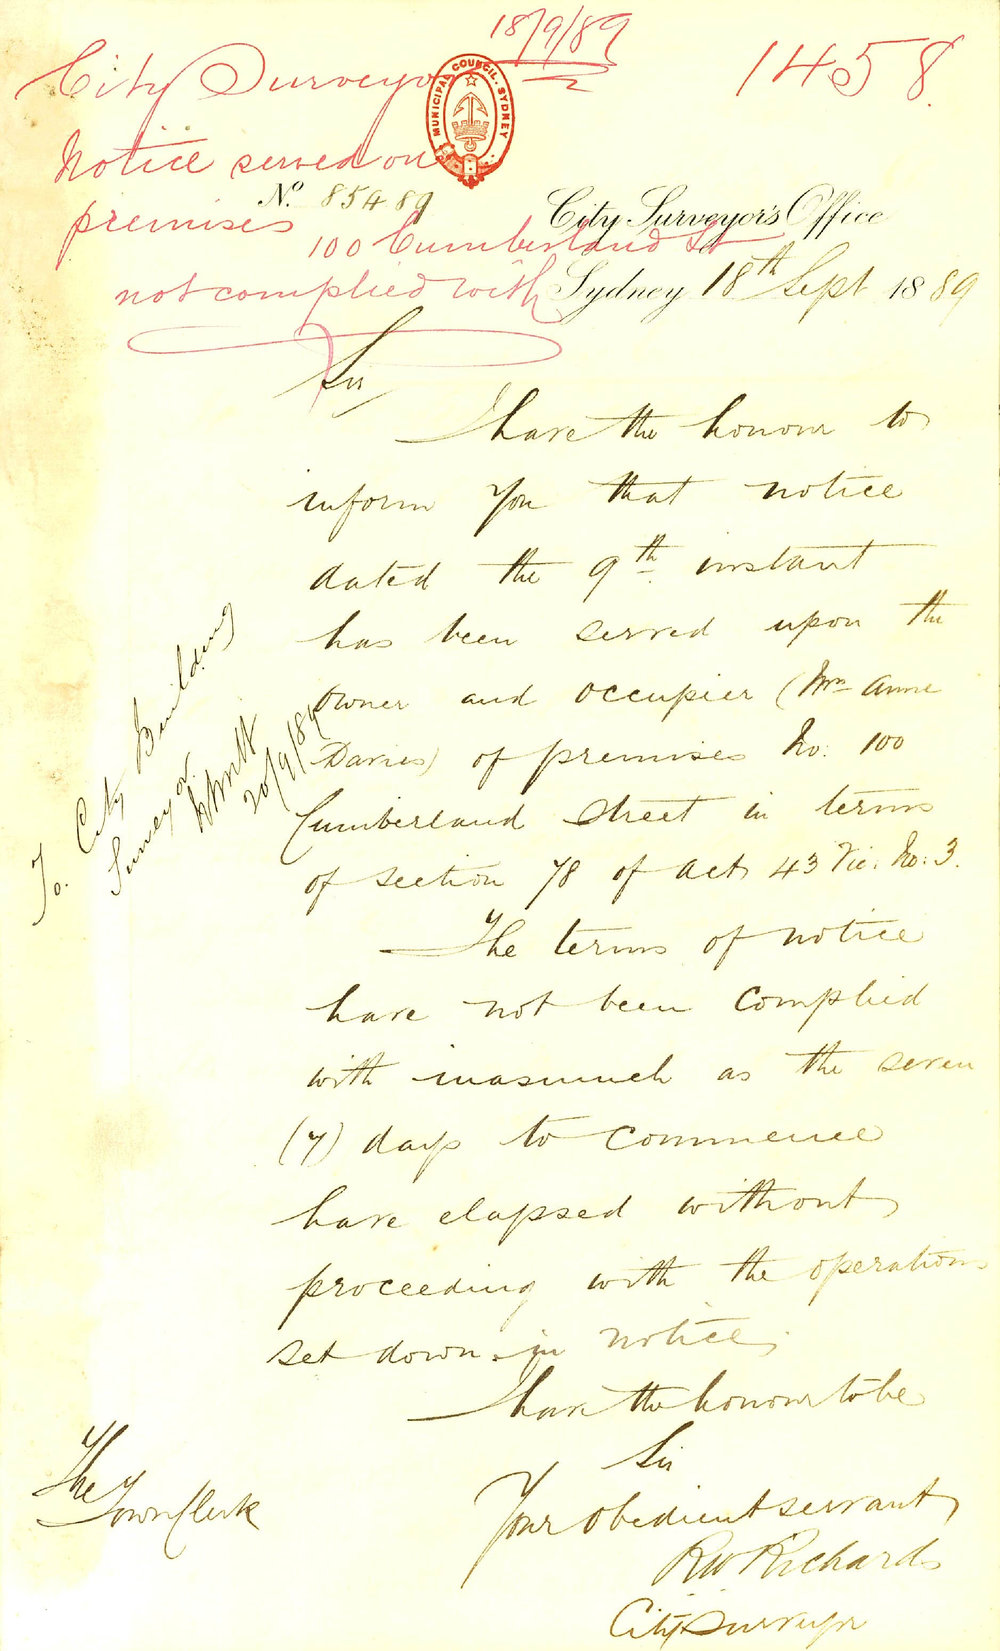 18/9/89
City Surveyor
1458
MUNICIPAL COUNCIL · SYDNEY
Notice served on
premises
100 Cumberland St
not complied with
No. 854 89
City Surveyor's Office
Sydney 18th Sept 1889
Sir
I have the honour to
inform you that notice
dated the 9th instant
has been served upon the
owner and occupier (Mrs Anne
Davies) of premises No: 100
Cumberland Street in terms
of section 78 of Act 43 Vic. No: 3.
The terms of notice
have not been complied
with inasmuch as the seven
(7) days to commence
have elapsed without
proceeding with the operations
set down in notice.
I have the honour to be
Sir
Your obedient servant
RW Richards
City Surveyor
The
Town Clerk
To. City Building
Surveyor
20/9/89